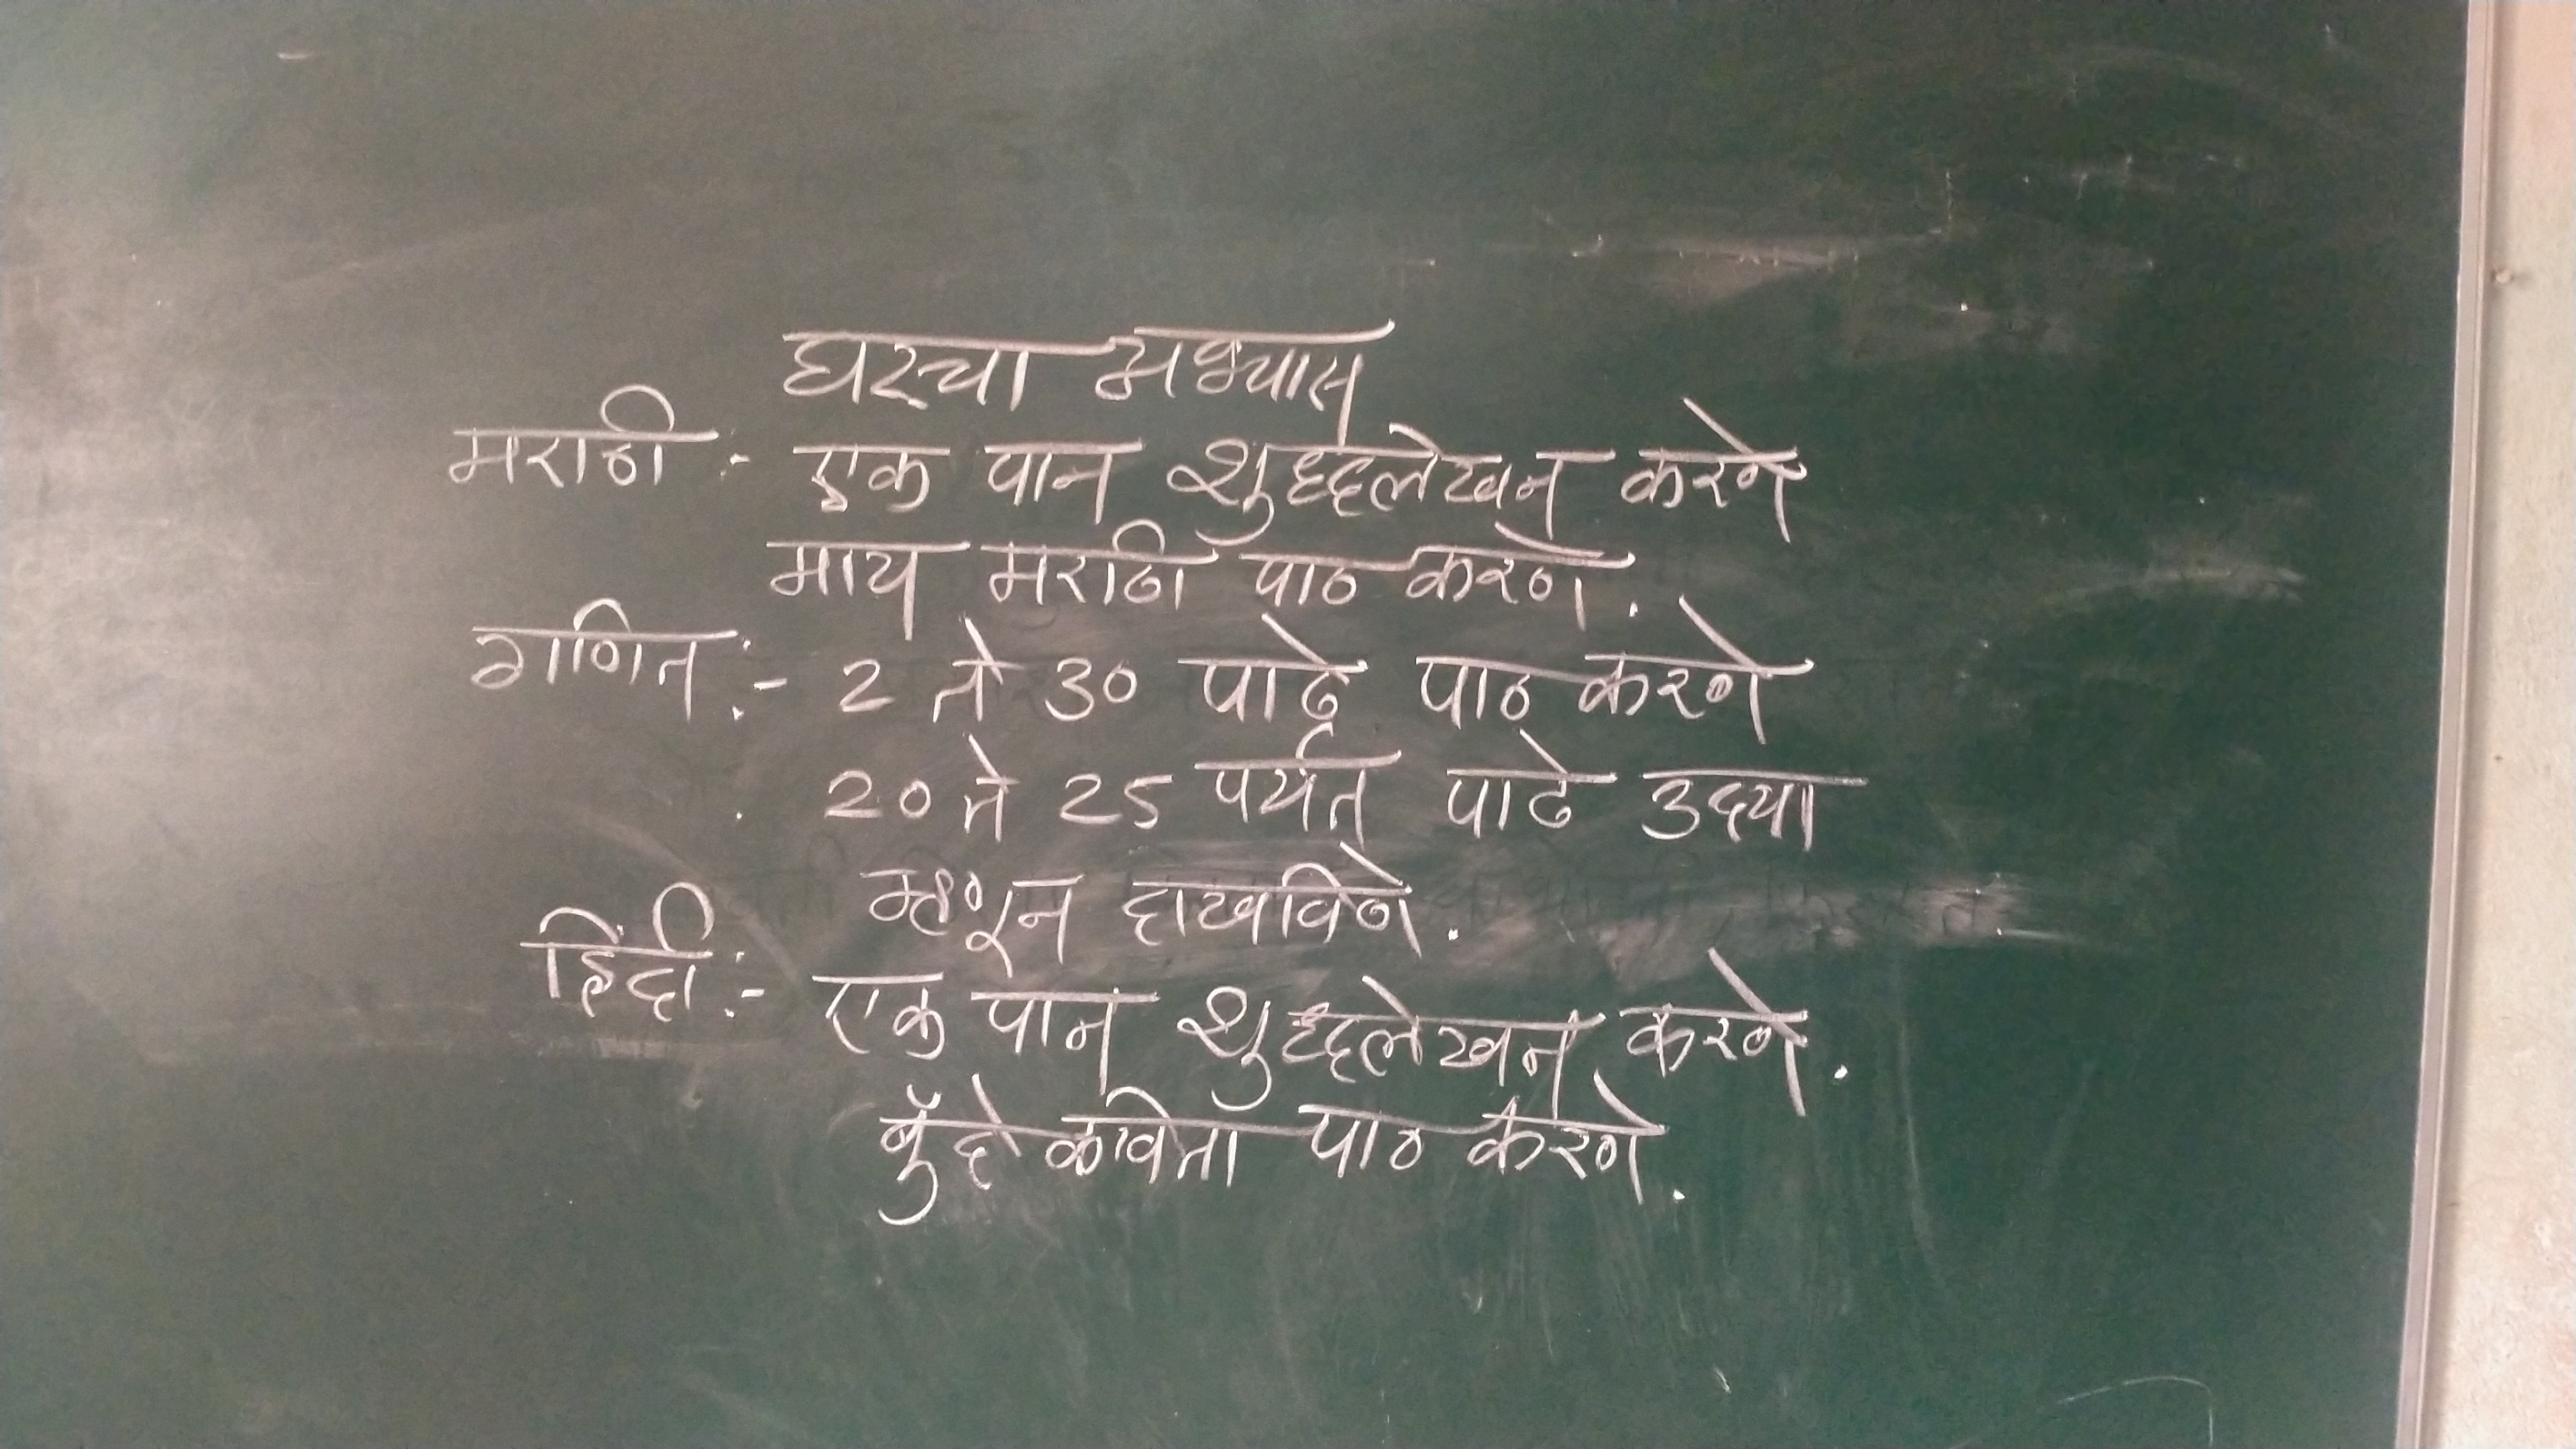 घरचा अभ्यास
मराठी :- एक पान शुध्दलेखन करणे
माय मराठी पाठ करणे.
गणित :- 2 ते 30 पाढे पाठ करणे
20 ते 25 पर्यंत पाढे उद्या
म्हणून दाखविणे.
हिंदी :- एक पान शुध्दलेखन करणे.
बुँदे कविता पाठ करणे.